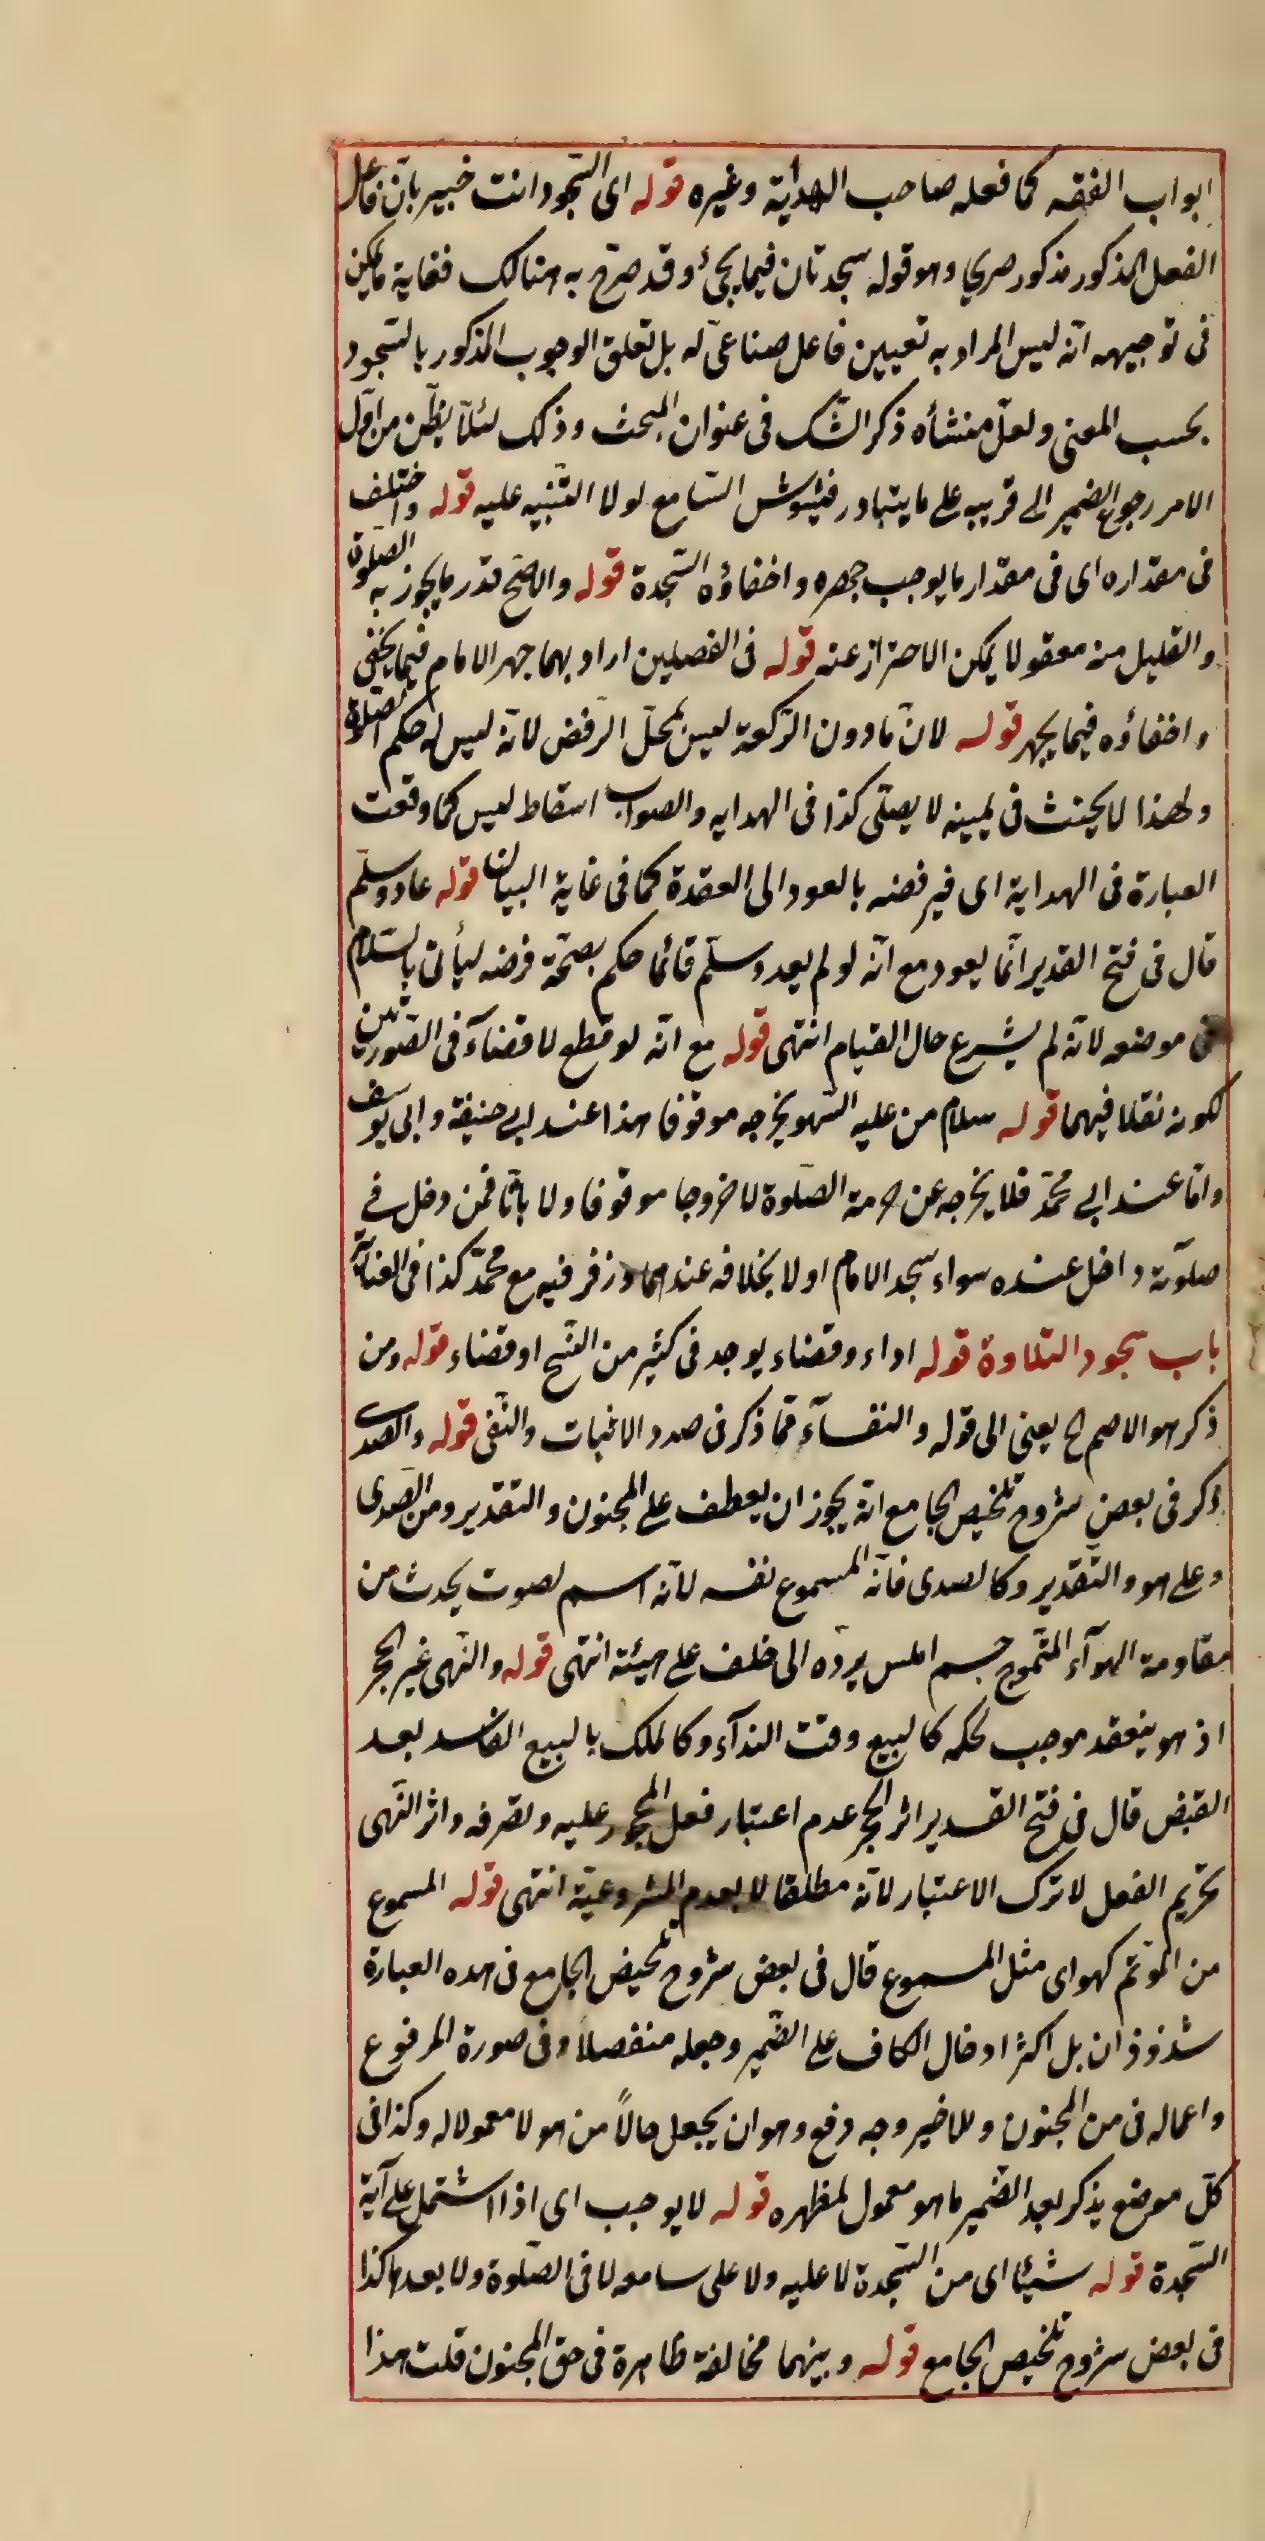 ابواب الفقه كما فعله صاحب الهداية وغيره قوله اى السّجود انت خبير بانّ فاعل
الفعل المذكور مذكور صريحا وهو قوله سجدتان فيما يجئ وقد صرّح به هنالك فغاية ما يمكن
فى توجيهه انّه ليس المراد به تعيين فاعل صناعىّ له بل تعلّق الوجوب المذكور بالسّجود
بحسب المعنى ولعلّ منشأه ذكر الشّك فى عنوان المبحث وذلك لئلّا يظنّ من اوّل
الامر رجوع الضمير الى قريبه على ما يتبادر فيشوش السّامع لولا التّنبيه عليه قوله واختلف
فى مقداره اى فى مقدار ما يوجب جهره واخفاؤه السّجدة قوله والاصّح قدر ما يجوز به الصّلوة
والقليل منه معفو لا يمكن الاحتراز عنه قوله فى الفصلين اراد بهما جهر الامام فيما يخفى
واخفاؤه فيما يجهر قوله لانّ ما دون الرّكعة ليس بمحلّ الرّفض لانّه ليس له حكم الصّلوة
ولهذا لا يحنث فى يمينه لا يصلّى كذا فى الهدايه والصواب اسقاط ليس كما وقعت
العبارة فى الهداية اى فيرفضه بالعود الى العقدة كما فى غاية البيان قوله عاد وسلّم
قال فى فتح القدير انّما يعود مع انّه لو لم يعد وسلّم قائما حكم بصحّة فرضه ليأتى بالسّلام
فى موضعه لانّه لم يشرع حال القيام انتهى قوله مع انّه لو قطع لا قضاء فى الصّورتين
لكونه نفلا فيهما قوله سلام من عليه السّهو يخرجه موقوفا هذا عند ابى حنيفة وابى يوسف
وامّا عند ابى محمّد فلا يخرجه عن حرمة الصّلوة لا خروجا موقوفا ولا باتّا فمن دخل فى
صلوته داخل عنده سواء سجد الامام او لا بخلافه عندهما وزفر فيه مع محمّد كذا فى العناية
باب سجود التلاوة قوله اداء وقضاء يوجد فى كثير من النّسخ او قضاء قوله ومن
ذكر هو الاصم الخ يعنى الى قوله والنفسآء ممّا ذكر فى صدد الاثبات والنّفى قوله والصّدى
ذكر فى بعض شروح تلخيص الجامع انّه يجوز ان يعطف على المجنون والتقدير ومن الصّدى
وعلى هو والتّقدير وكالصدى فانّه المسموع نفسه لانّه اسم لصوت يحدث من
مقاومة الهوآء المتّموج جسم املس يردّه الى خلف على هيئته انتهى قوله والنّهى غير الحجر
اذ هو ينعقد موجب لحكمه كالبيع وقت النداء وكالملك بالبيع الفاسد بعد
القبض قال فى فتح القدير اثر الحجر عدم اعتبار فعل المحجور عليه وتصرفه واثر النّهى
تحريم الفعل لا ترك الاعتبار لانّه مطلقا لا يعدم المشروعيّة انتهى قوله المسموع
من المؤتم كهو اى مثل المسموع قال فى بعض شروح تلخيص الجامع فى هذه العبارة
شذوذان بل اكثر ادخال الكاف على الضّمير وجعله منفصلا وفى صورة المرفوع
واعماله فى من المجنون وللاخير وجه دفع وهو ان يجعل حالاً من هو لا معمولا له وكذا فى
كلّ موضع يذكر بعد الضّمير ما هو معمول لمظهره قوله لا يوجب اى اذا اشتمل على آية
السّجدة قوله شيئا اى من السّجدة لا عليه ولا على سامعه لا فى الصّلوة ولا بعدها كذا
فى بعض شروح تلخيص الجامع قوله وبينهما مخالفة ظاهرة فى حق المجنون قلت هذا